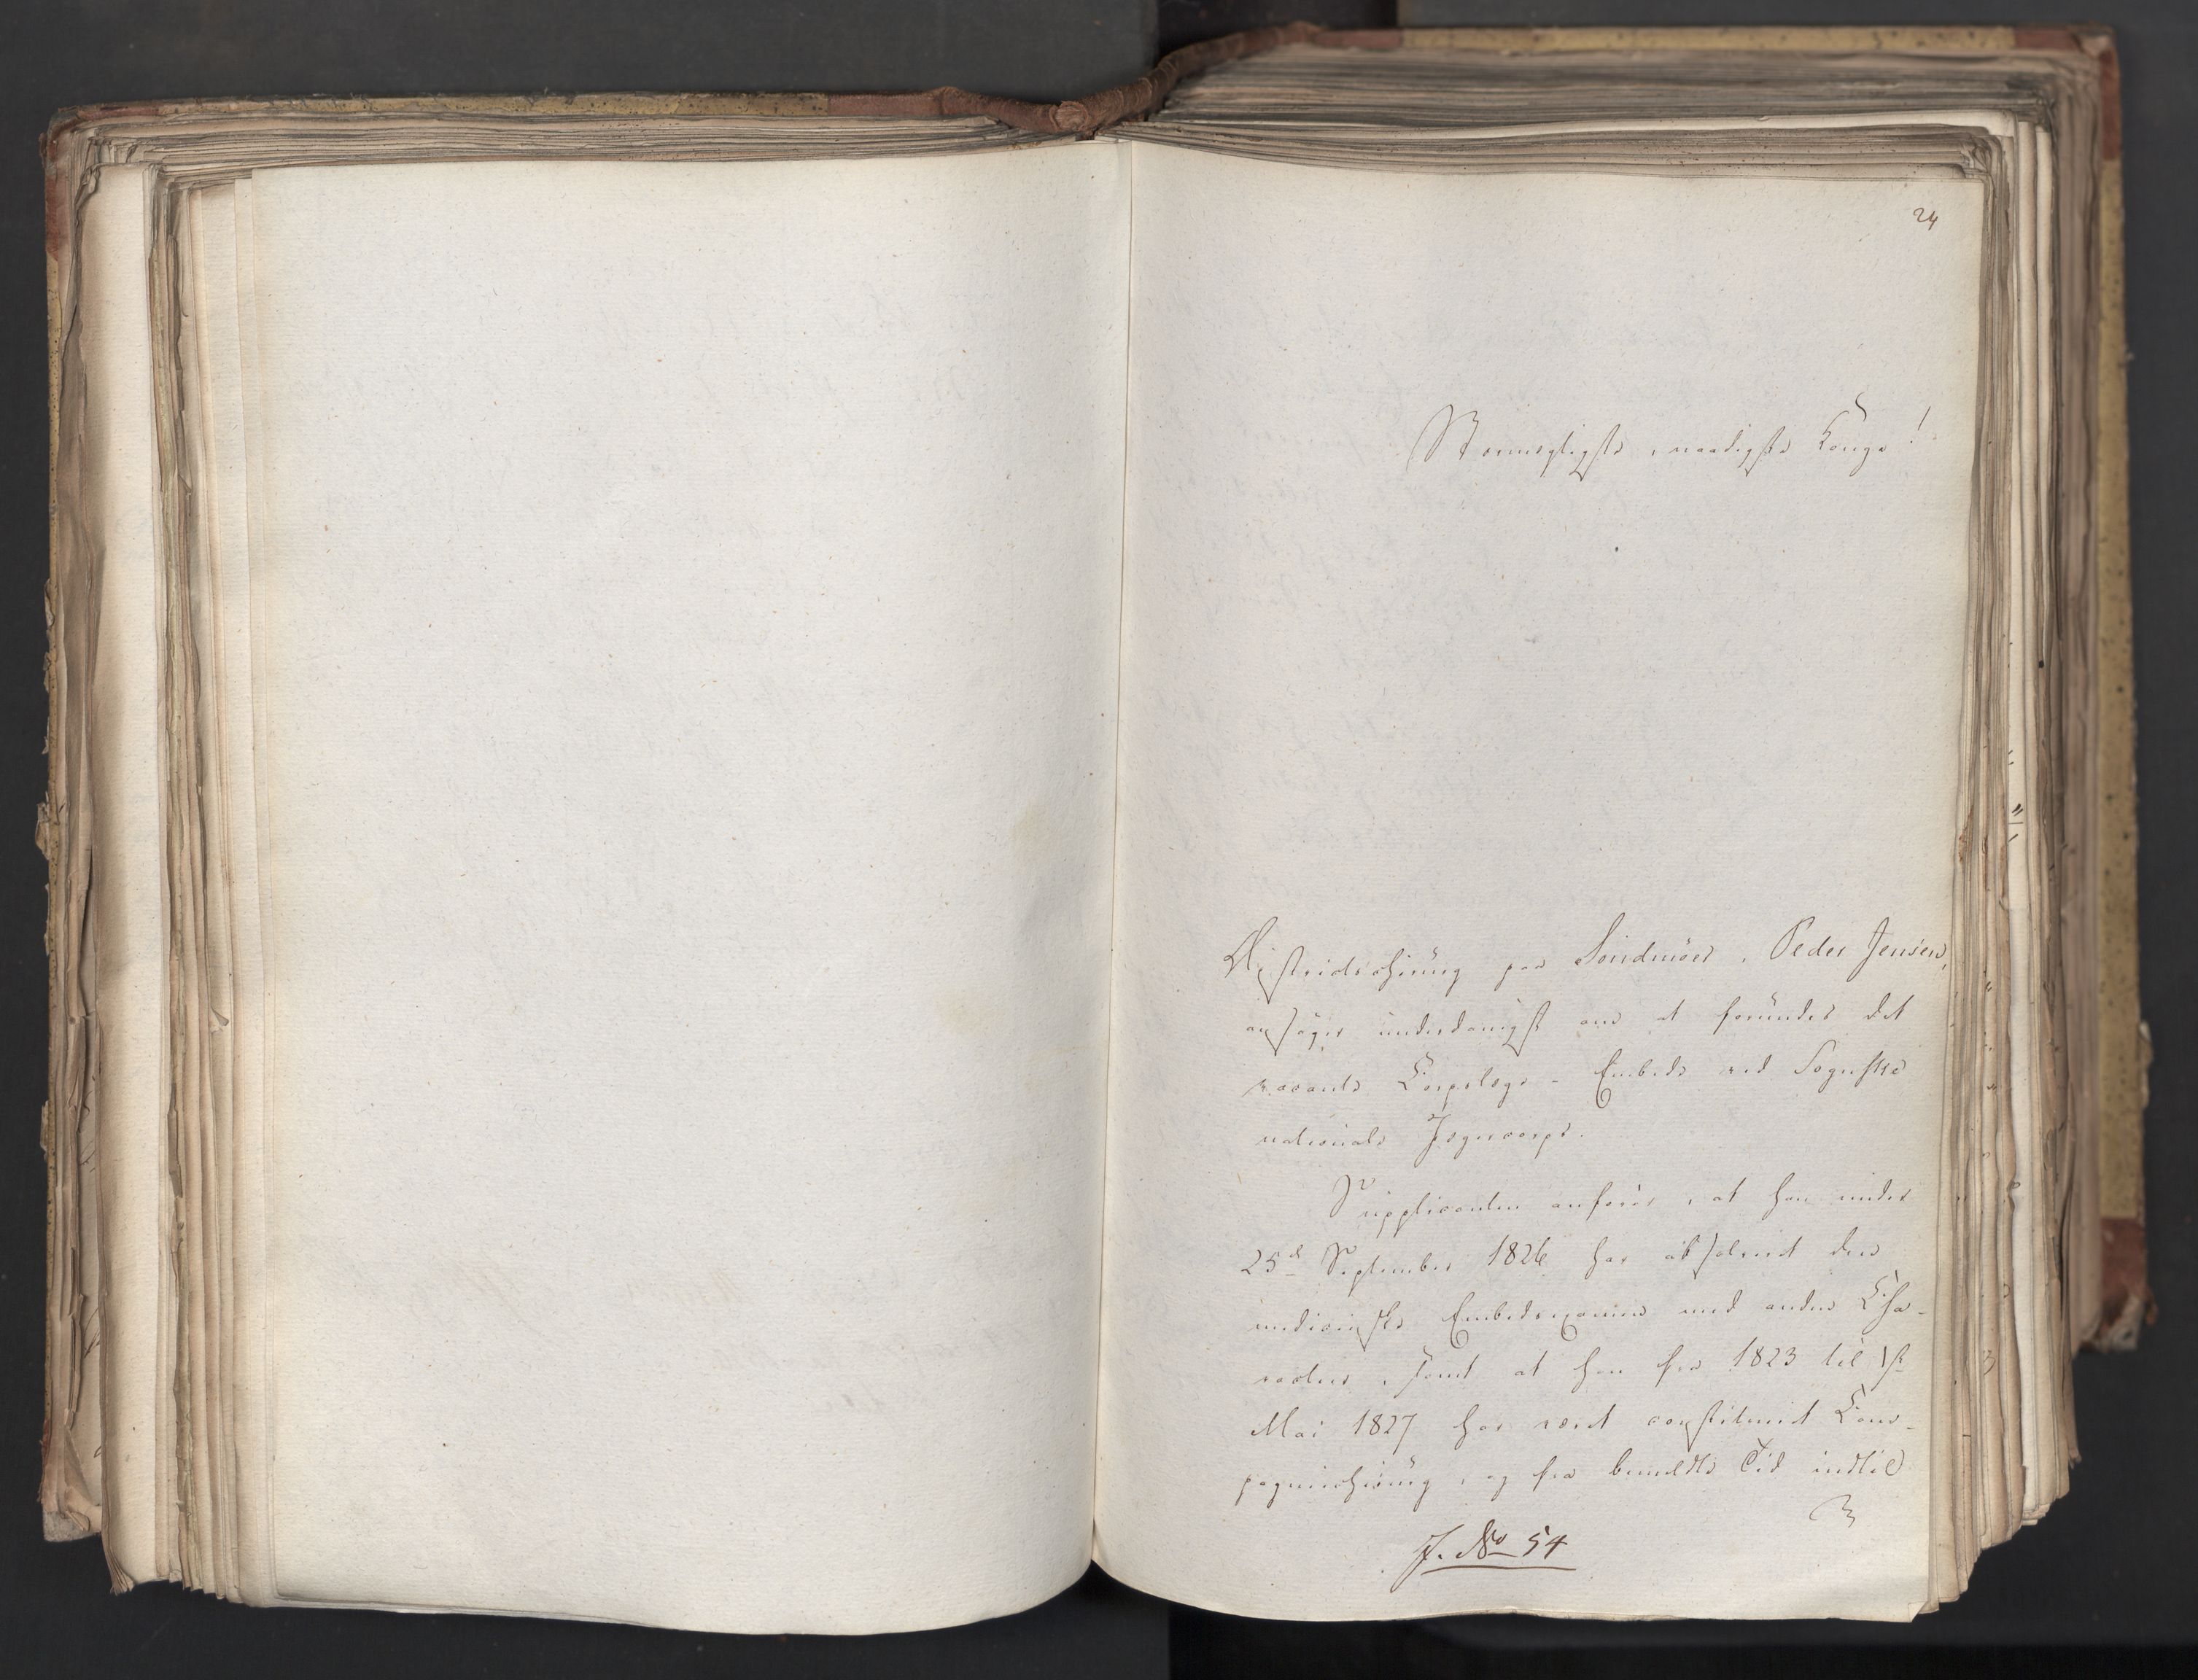 24
Stormægtigste, naadigste Konge!
Districtschirurg paa Söndmöer, Peder Jensen,
ansöger underdanigst om at forundes det
vacante Corpslæge-Embede ved Sognske
nationale Jægercorps.
Supplicanten anförer, at han under
25d September 1826 har absolveret den
medicinske Embedsexamen med anden Cha-
racteer, samt at han fra 1823 til 1ste
Mai 1827 har været constitueret Com-
pagniechirurg, og fra bemeldte Tid indtil
J. No 54